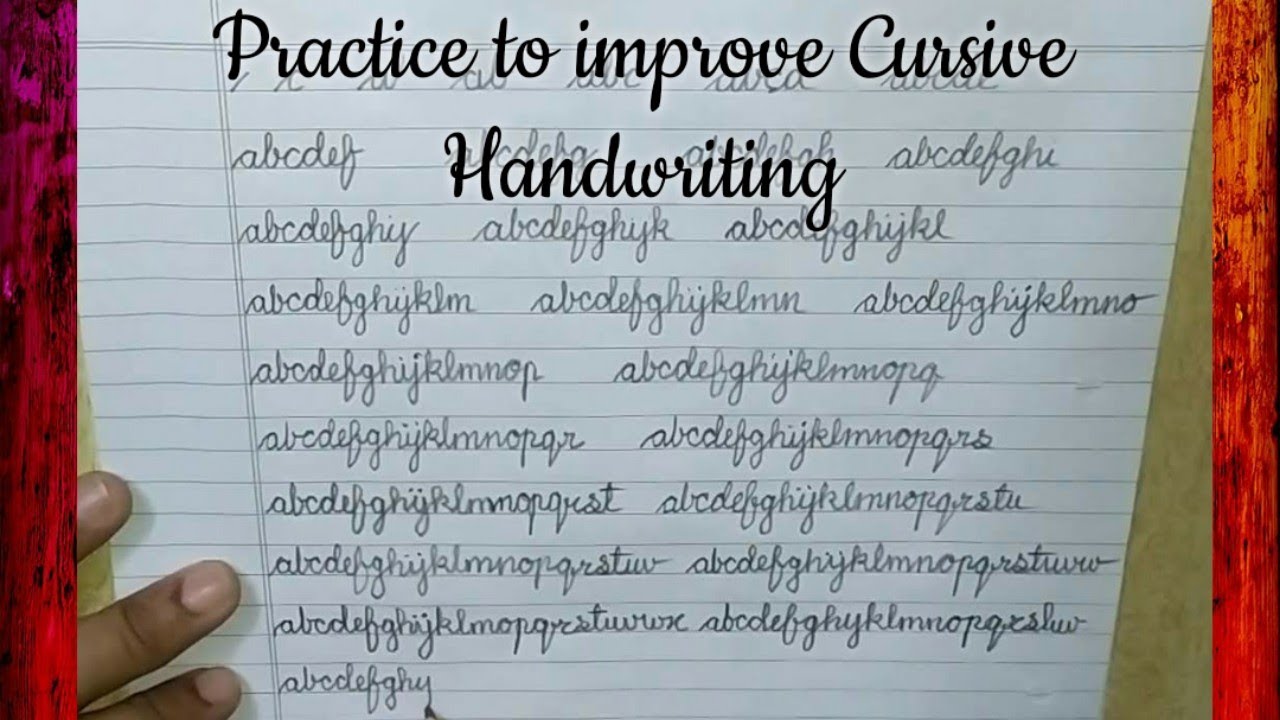 Practice to improve Cursive
Handwriting
abcdef abcdefg abcdefgh abcdefghi
abcdefghij abcdefghijk abcdefghijkl
abcdefghijklm abcdefghijklmn abcdefghijklmno
abcdefghijklmnop abcdefghijklmnopq
abcdefghijklmnopqr abcdefghijklmnopqrs
abcdefghijklmnopqrst abcdefghijklmnopqrstu
abcdefghijklmnopqrstuv abcdefghijklmnopqrstuvw
abcdefghijklmopqrstuvwx
abcdefghij